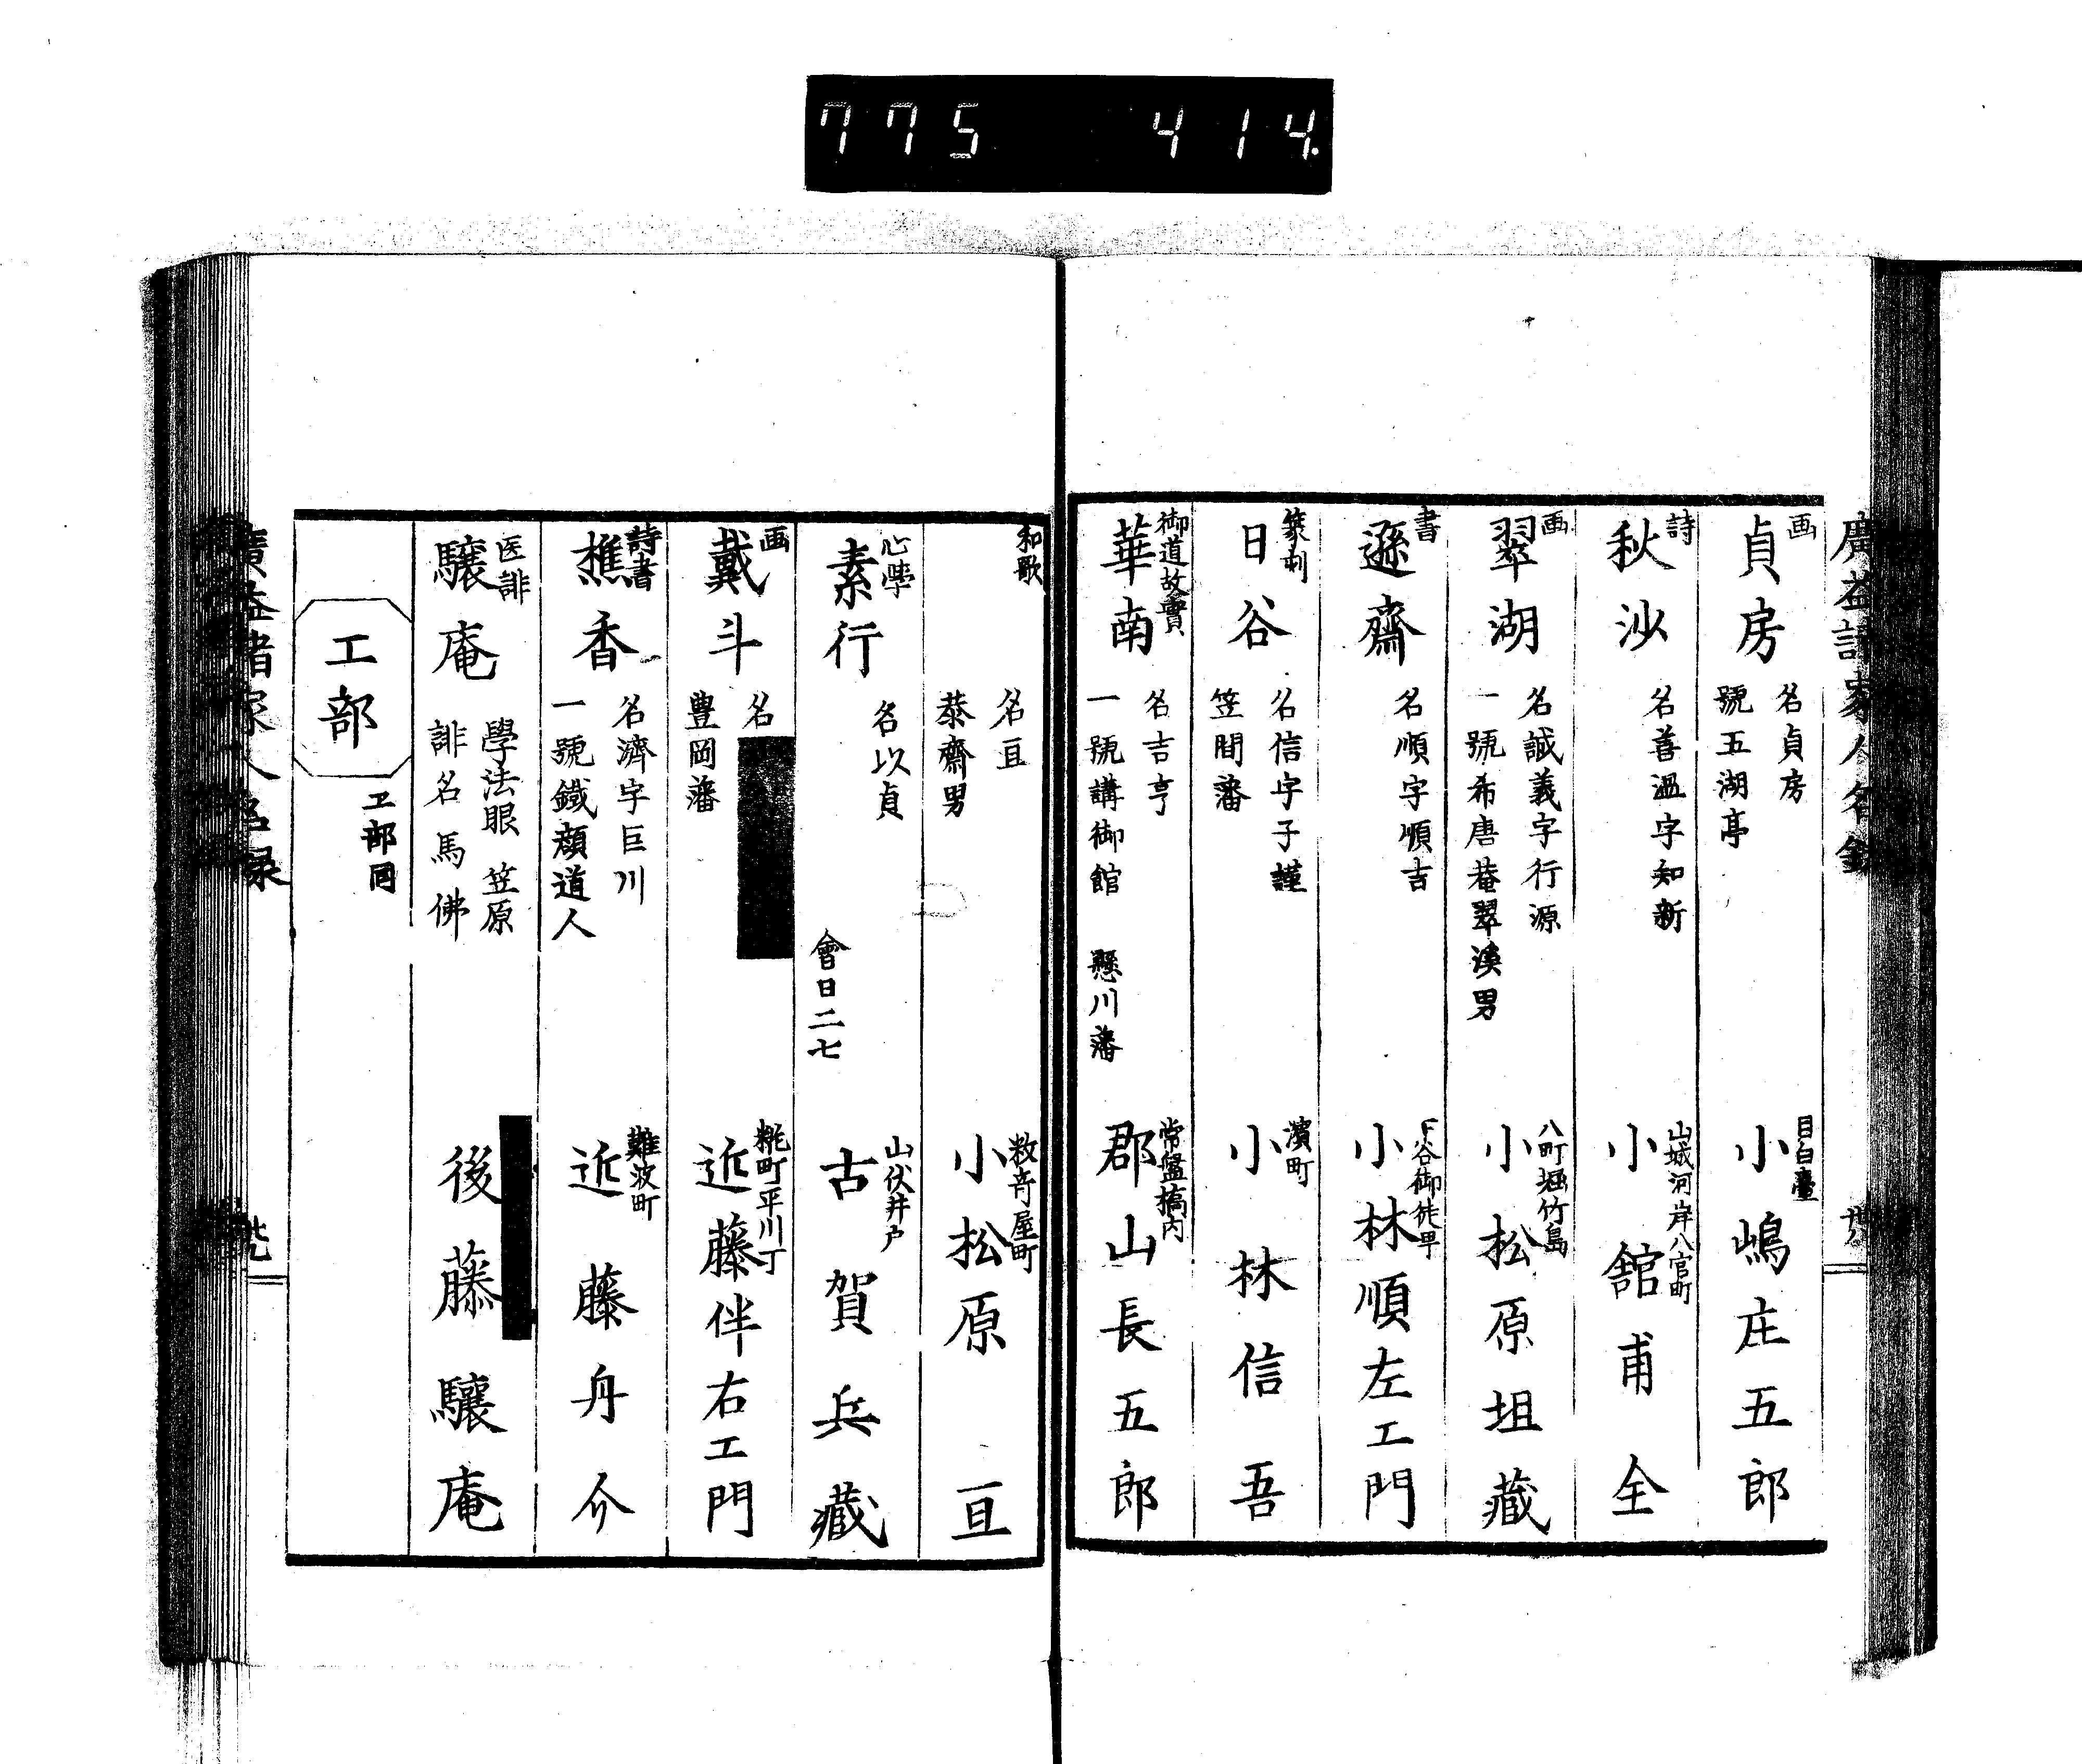 775 414.
廣益諸家人名録
画
貞房
名貞房
號五湖亭
目白臺
小嶋庄五郎
詩
秋沙
名善温字知新
山城河岸八官町
小舘甫全
画
翠湖
名誠義字行源
一號希唐菴翠溪男
八町堀竹島
小松原坦藏
書
遜齋
名順字順吉
下谷御徒町
小林順左工門
篆刻
日谷
名信字子謹
笠間藩
濱町
小林信吾
御道故實
華南
名吉亨
一號講御館 懸川藩
常盤橋内
郡山長五郎
和歌
名亘
恭齋男
数寄屋町
小松原亘
心學
素行
名以貞
會日二七
山伏井戸
古賀兵藏
画
戴斗
名
豊岡藩
糀町平川丁
近藤伴右工門
詩書
樵香
名濟字巨川
一號鐵顔道人
難波町
近藤舟介
医誹
驤庵
學法眼 笠原
誹名馬佛
後藤驤庵
工部
ヱ部同
廣益諸家人名録